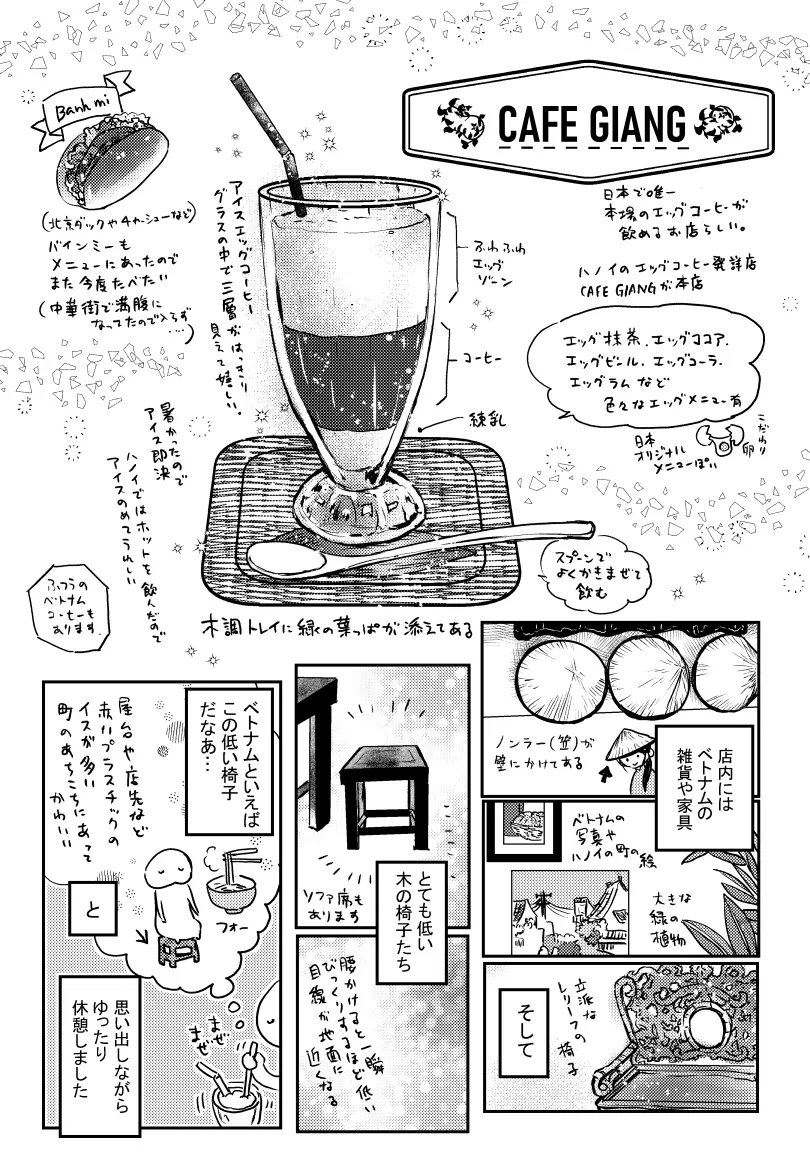 CAFE GIANG
Banh mi
(北京ダックやチャーシューなど)
バインミーも
メニューにあったので
また今度たべたい
(中華街で満腹に
なってたので入らず
…)
アイスエッグコーヒー
グラスの中で三層がはっきり
見えて嬉しい。
ふわふわ
エッグ
ゾーン
コーヒー
練乳
日本で唯一
本場のエッグコーヒーが
飲めるお店らしい。
ハノイのエッグコーヒー発祥店
CAFE GIANGが本店
エッグ抹茶、エッグココア、
エッグビンル、エッグコーラ、
エッグラムなど
色々なエッグメニュー有
日本
オリジナル
メニューぽい
こだわり
卵
暑かったので
アイス即決
ハノイではホットを飲んだので
アイスのめてうれしい
ふつうの
ベトナム
コーヒーも
あります
スプーンで
よくかきまぜて
飲む
木調トレイに緑の葉っぱが添えてある
ノンラー(笠)が
壁にかけてある
店内には
ベトナムの
雑貨や家具
ベトナムの
写真や
ハノイの町の絵
大きな
緑の
植物
そして
立派な
レリーフの
椅子
ソファ席も
あります
とても低い
木の椅子たち
腰かけると一瞬
びっくりするほど低い
目線が地面に
近くなる
ベトナムといえば
この低い椅子
だなあ…
屋台や店先など
赤いプラスチックの
イスが多い
町のあちこちにあって
かわいい
フォー
と
思い出しながら
ゆったり
休憩しました
まぜ
まぜ